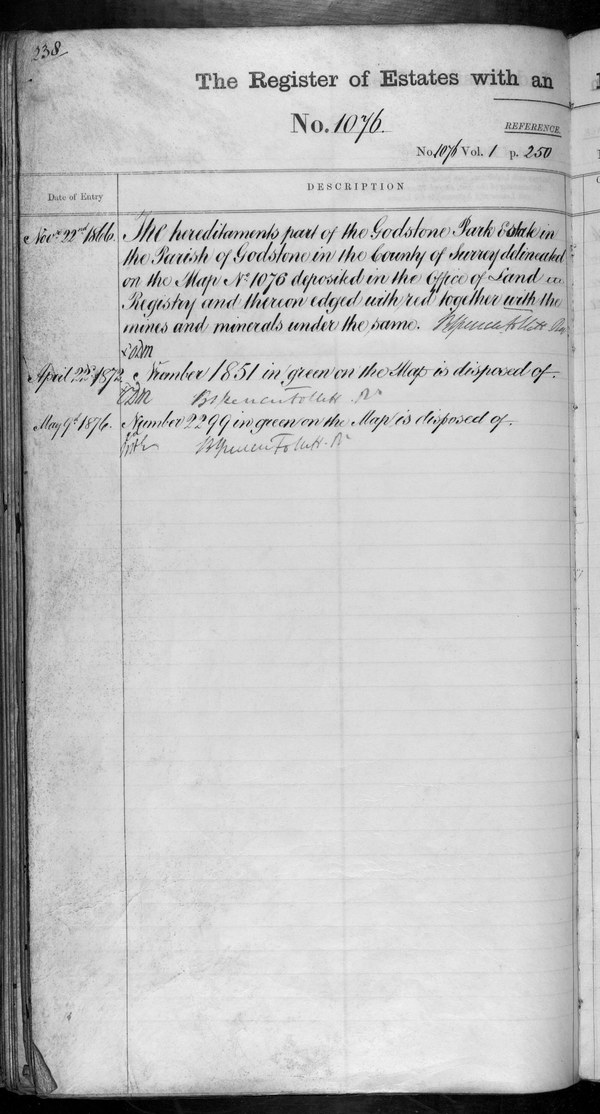 238
The Register of Estates with an
No. 1076.
REFERENCE
No. 1076 Vol. 1 p. 250
Date of Entry
DESCRIPTION
Novr 22nd 1866. The hereditaments part of the Godstone Park Estate in
the Parish of Godstone in the County of Surrey delineated
on the Map No 1076 deposited in the Office of Land
Registry and thereon edged with red together with the
mines and minerals under the same. B Spencer Follett
April 22nd 1872. Number 1851 in green on the Map is disposed of.
B Spencer Follett. Rr
May 9th 1876. Number 2299 in green on the Map is disposed of.
B Spencer Follett. Rr